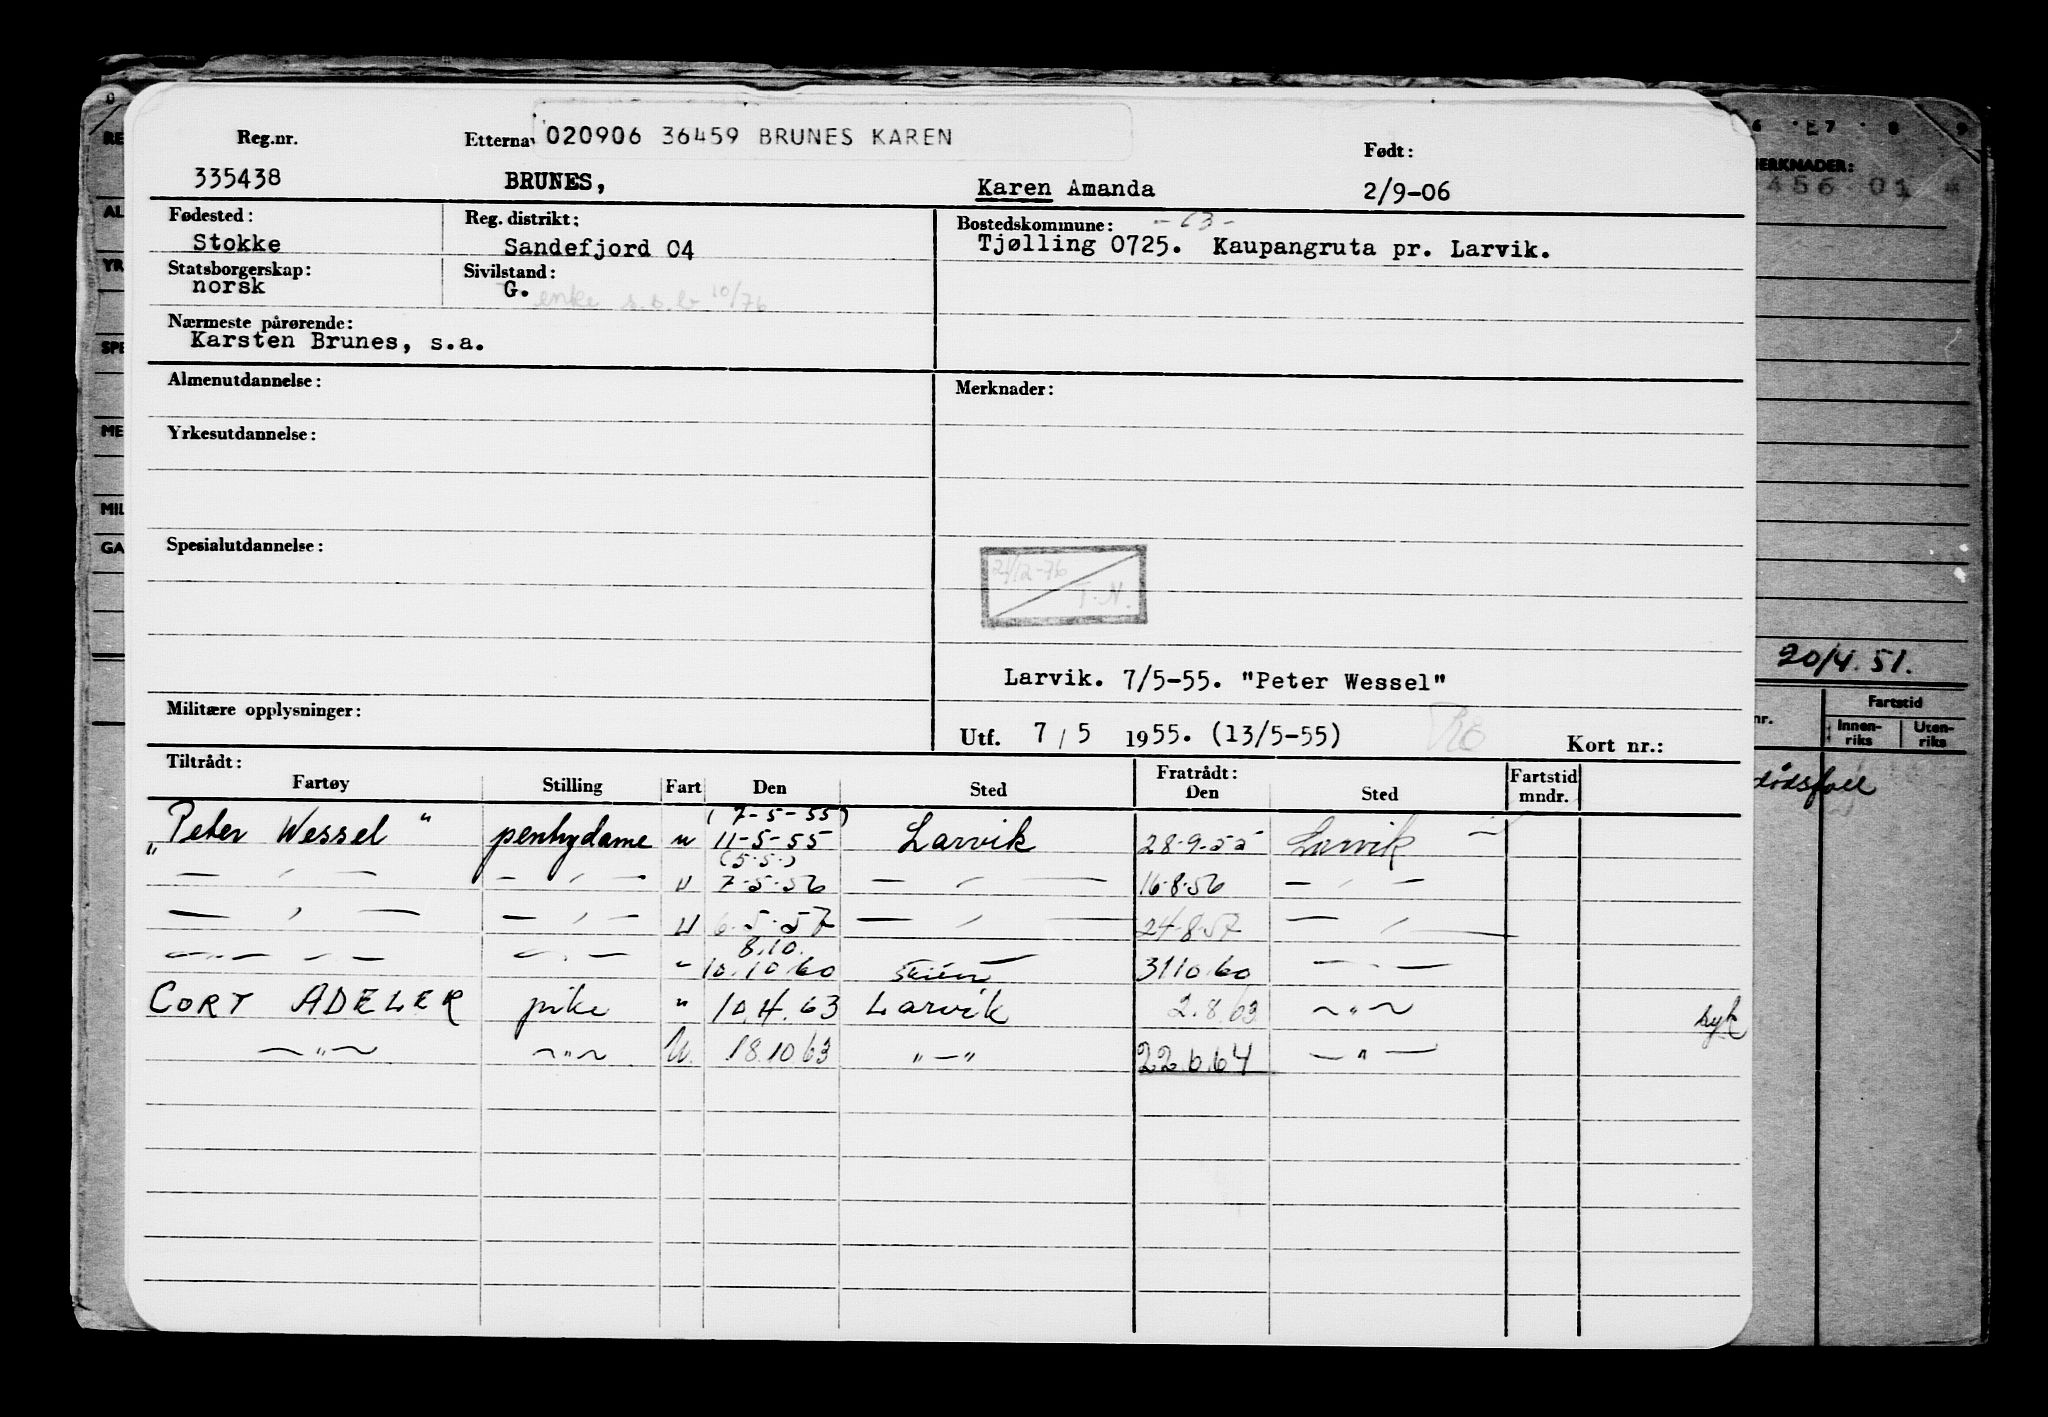 Reg.nr. Etternav 020906 36459 BRUNES KAREN Født:
335438 BRUNES, Karen Amanda 2/9-06
Fødested: Reg. distrikt: Bostedskommune: - 63 -
Stokke Sandefjord 04 Tjølling 0725. Kaupangruta pr. Larvik.
Statsborgerskap: Sivilstand:
norsk G. enke 10/76
Nærmeste pårørende:
Karsten Brunes, s.a.
Almenutdannelse: Merknader:
Yrkesutdannelse:
Spesialutdannelse:
21/12-76
T.N.
Larvik. 7/5-55. "Peter Wessel"
Militære opplysninger:
Utf. 7 / 5 1955. (13/5-55) Kort nr.:
Tiltrådt: Fratrådt: Fartstid
Fartøy Stilling Fart Den Sted Den Sted mndr.
(7-5-55)
"Peter Wessel" pentrydame u 11-5-55 Larvik 28-9-55 Larvik
(5.5.)
— " — — " — U 7-5-56 — " — 16-8-56 — " —
— " — — " — U 6-5-57 — " — 24-8-57 — " —
8.10.
— " — — " — " 10.10.60 Skien 31.10.60 — " —
CORT ADELER pike " 10.4.63 Larvik 2.8.63 — " — syk
— " — — " — U. 18.10.63 " — " 22.6.64 — " —
6 7 8 9
MERKNADER:
456 01
20/4.51.
nr. Fartstid
Innen-riks Uten-riks
dødsfall
RE
AL
YR
SPE
ME
MIL
GA